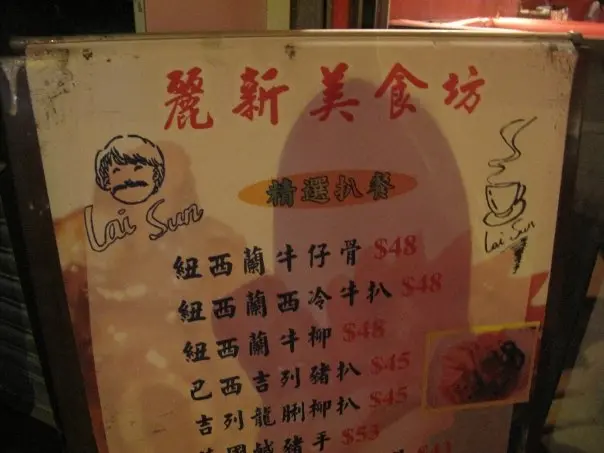 麗新美食坊
Lai Sun
Lai Sun
精選扒餐
紐西蘭牛仔骨 $48
紐西蘭西冷牛扒 $48
紐西蘭牛柳 $48
巴西吉列豬扒 $45
吉列龍脷柳扒 $45
國鹹豬手 $53